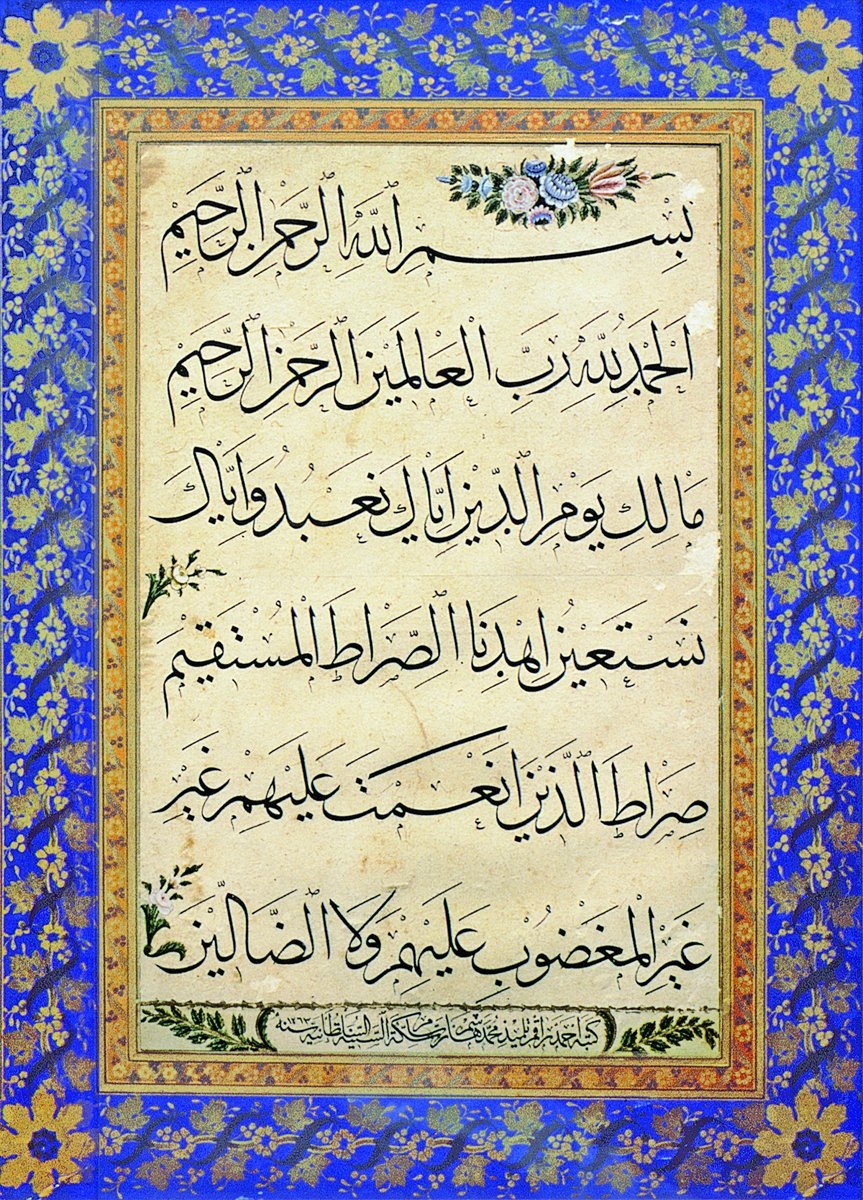 بِسْمِ اللهِ الرَّحْمٰنِ الرَّحِيمِ
اَلْحَمْدُ لِلّٰهِ رَبِّ الْعَالَمِينَ الرَّحْمٰنِ الرَّحِيمِ
مَالِكِ يَوْمِ الدِّينِ اِيَّاكَ نَعْبُدُ وَاِيَّاكَ
نَسْتَعِينُ اِهْدِنَا الصِّرَاطَ الْمُسْتَقِيمَ
صِرَاطَ الَّذِينَ اَنْعَمْتَ عَلَيْهِمْ غَيْرِ
غَيْرِ الْمَغْضُوبِ عَلَيْهِمْ وَلَا الضَّالِّينَ
كتبه احمد راقم تلميذ محمد هاشم